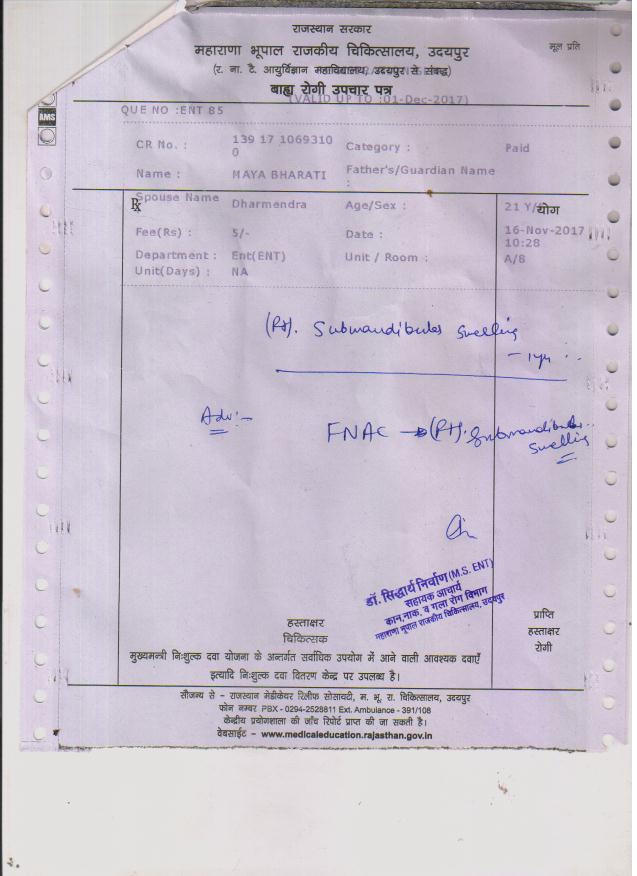 राजस्थान सरकार
महाराणा भूपाल राजकीय चिकित्सालय, उदयपुर
मूल प्रति
(र. ना. टै. आयुर्विज्ञान महाविद्यालय, उदयपुर से संबद्ध)
बाह्य रोगी उपचार पत्र
(VALID UP TO :01-Dec-2017)
AMS
QUE NO :ENT 85
CR No. : 139 17 1069310 0 Category : Paid
Name : MAYA BHARATI Father's/Guardian Name :
Rx
Spouse Name Dharmendra Age/Sex : 21 Y/ योग
Fee(Rs) : 5/- Date : 16-Nov-2017 10:28
Department : Ent(ENT) Unit / Room : A/8
Unit(Days) : NA
(Rt). Submandibular swelling
- 1yr
Adv:-
FNAC → (Rt). Submandibular
swelling
डॉ. सिद्धार्थ निर्वाण (M.S. ENT)
सहायक आचार्य
कान,नाक, व गला रोग विभाग
महाराणा भूपाल राजकीय चिकित्सालय, उदयपुर
हस्ताक्षर
चिकित्सक
प्राप्ति
हस्ताक्षर
रोगी
मुख्यमन्त्री निःशुल्क दवा योजना के अन्तर्गत सर्वाधिक उपयोग में आने वाली आवश्यक दवाएँ
इत्यादि निःशुल्क दवा वितरण केन्द्र पर उपलब्ध है।
सौजन्य से - राजस्थान मेडीकेयर रिलीफ सोसायटी, म. भू. रा. चिकित्सालय, उदयपुर
फोन नम्बर PBX - 0294-2528811 Ext. Ambulance - 391/108
केन्द्रीय प्रयोगशाला की जाँच रिपोर्ट प्राप्त की जा सकती है।
वेबसाईट - www.medicaleducation.rajasthan.gov.in